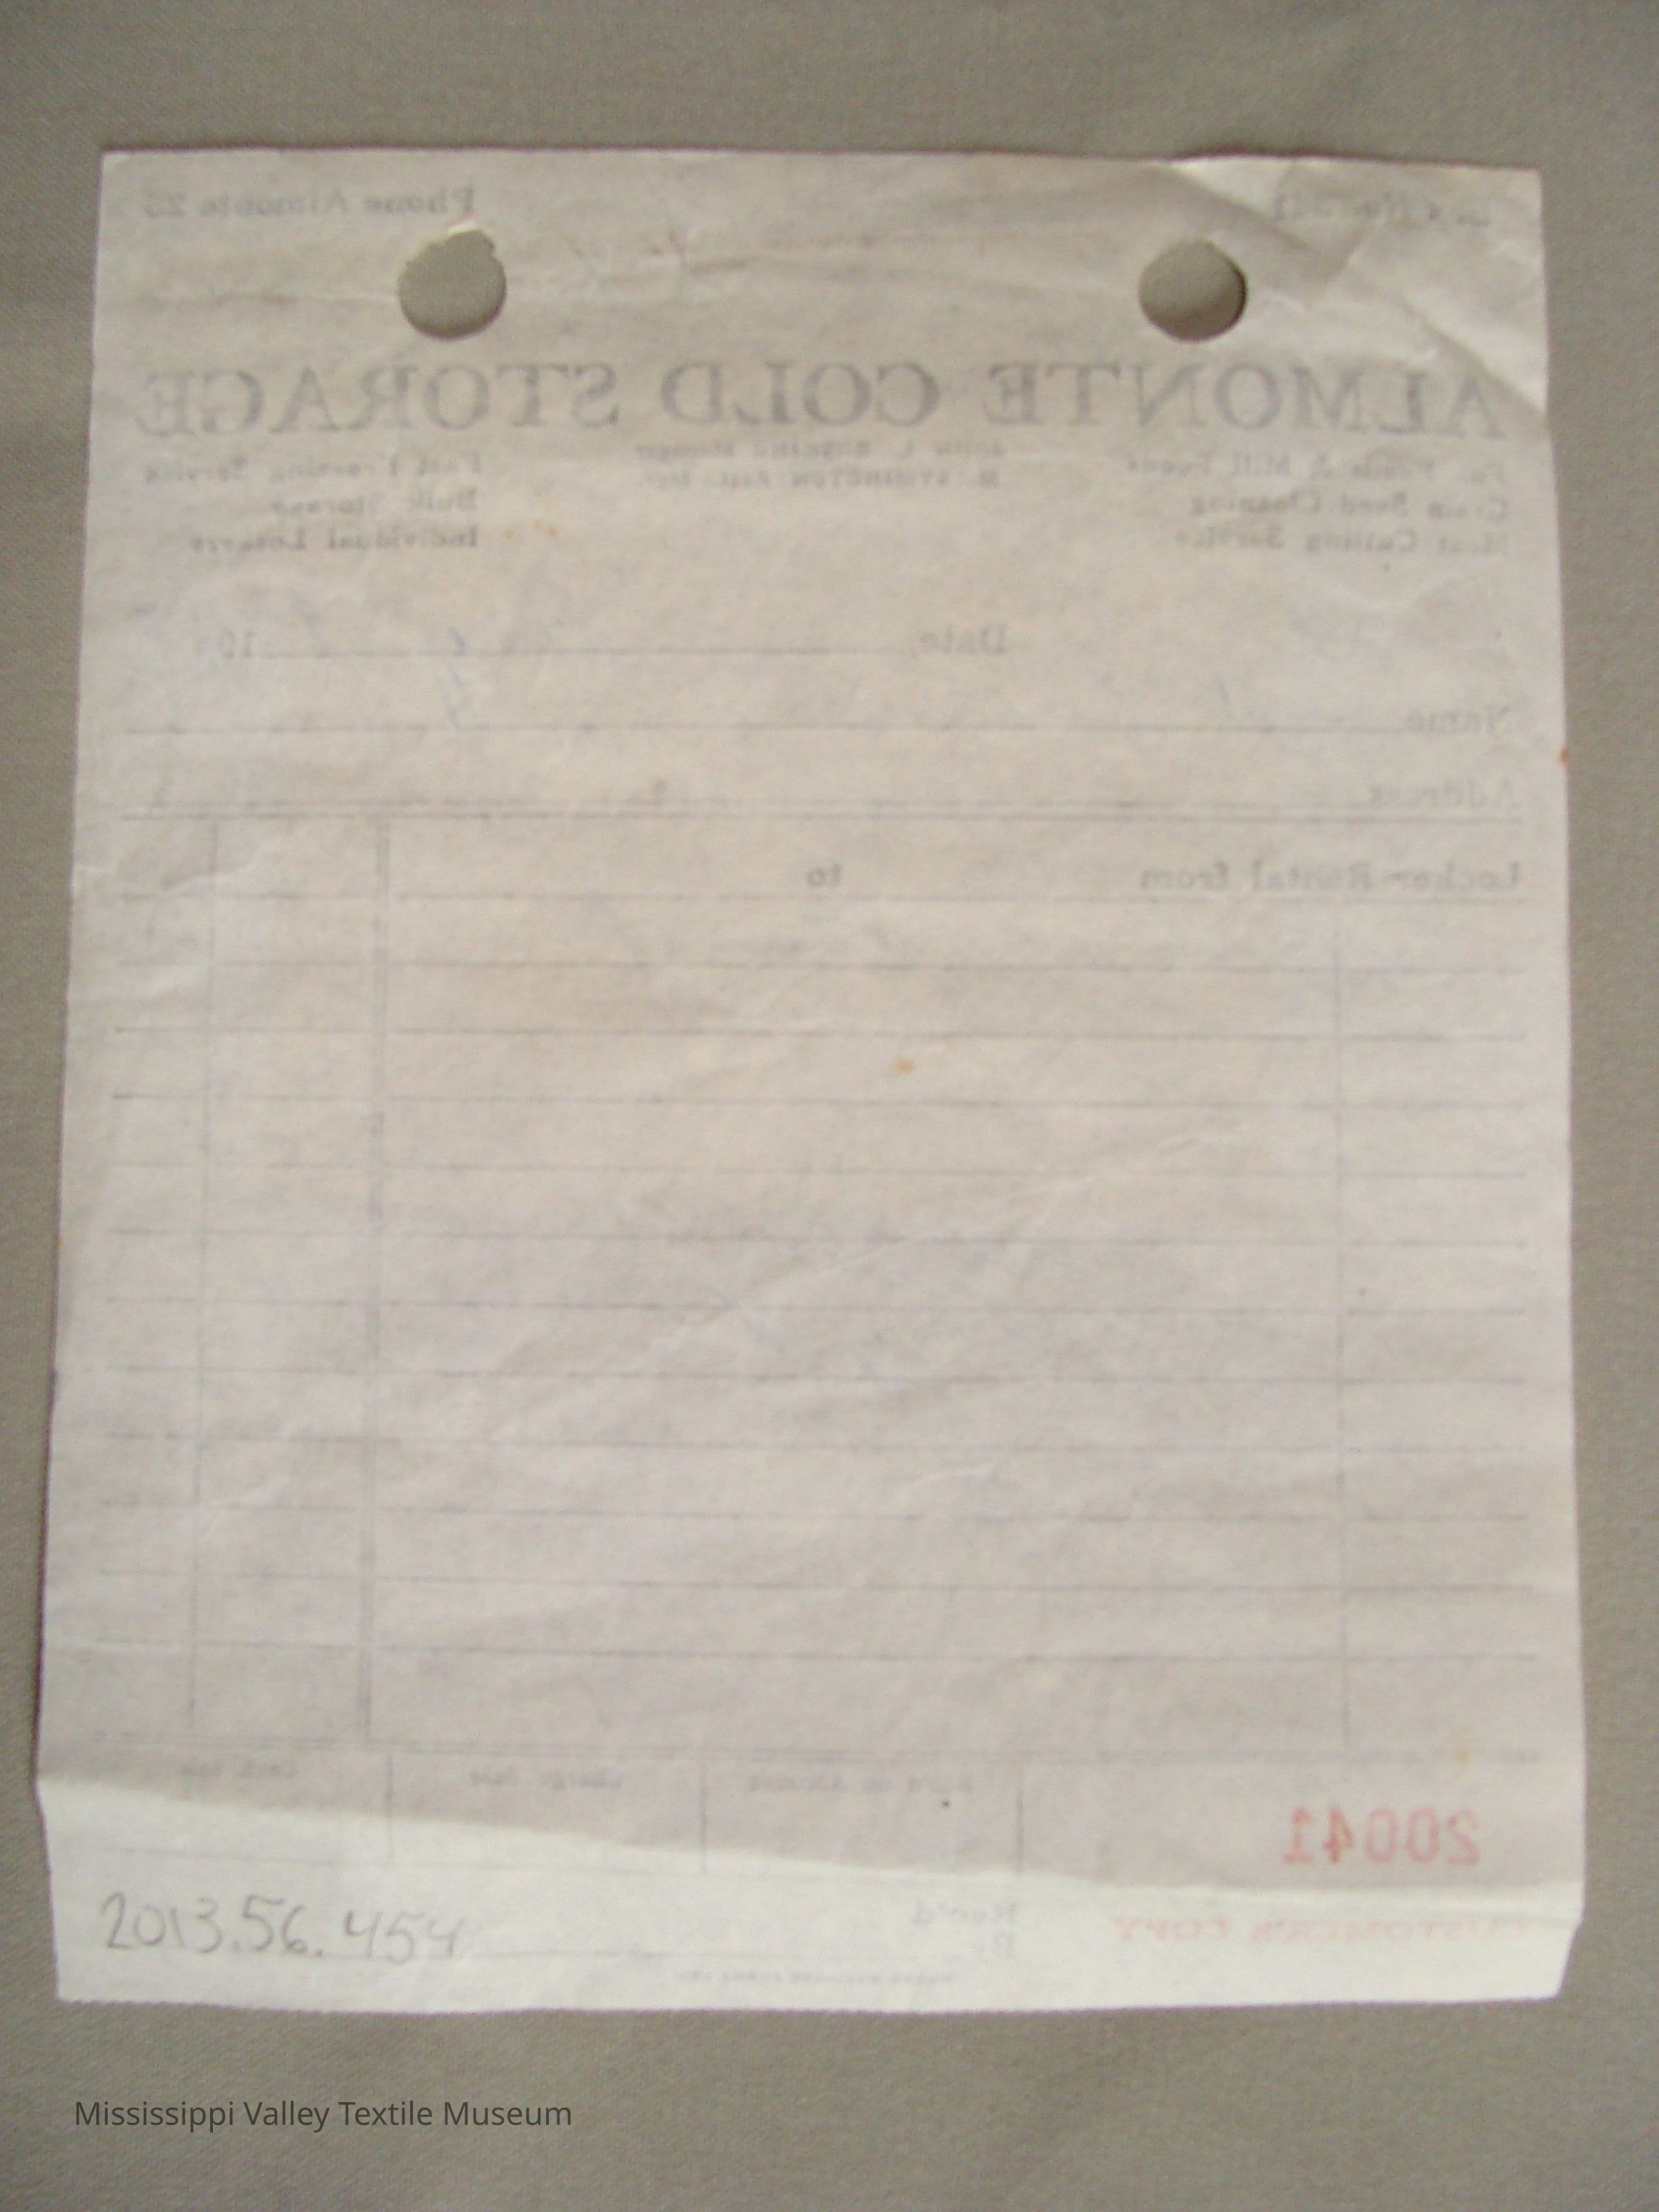 Phone Almonte 25
ALMONTE COLD STORAGE
JOHN L. ERSKINE Manager
M. SYMINGTON Asst. Mgr.
Fast Freezing Service
Bulk Storage
Individual Lockers
Mill Feeds
Grain Seed Cleaning
Meat Cutting Service
Date 19
Name
Address
Locker Rental from to
Rec'd on Account Charge Sale Cash Sale
20041
CUSTOMER'S COPY
Rec'd
By
2013.56.454
Mississippi Valley Textile Museum